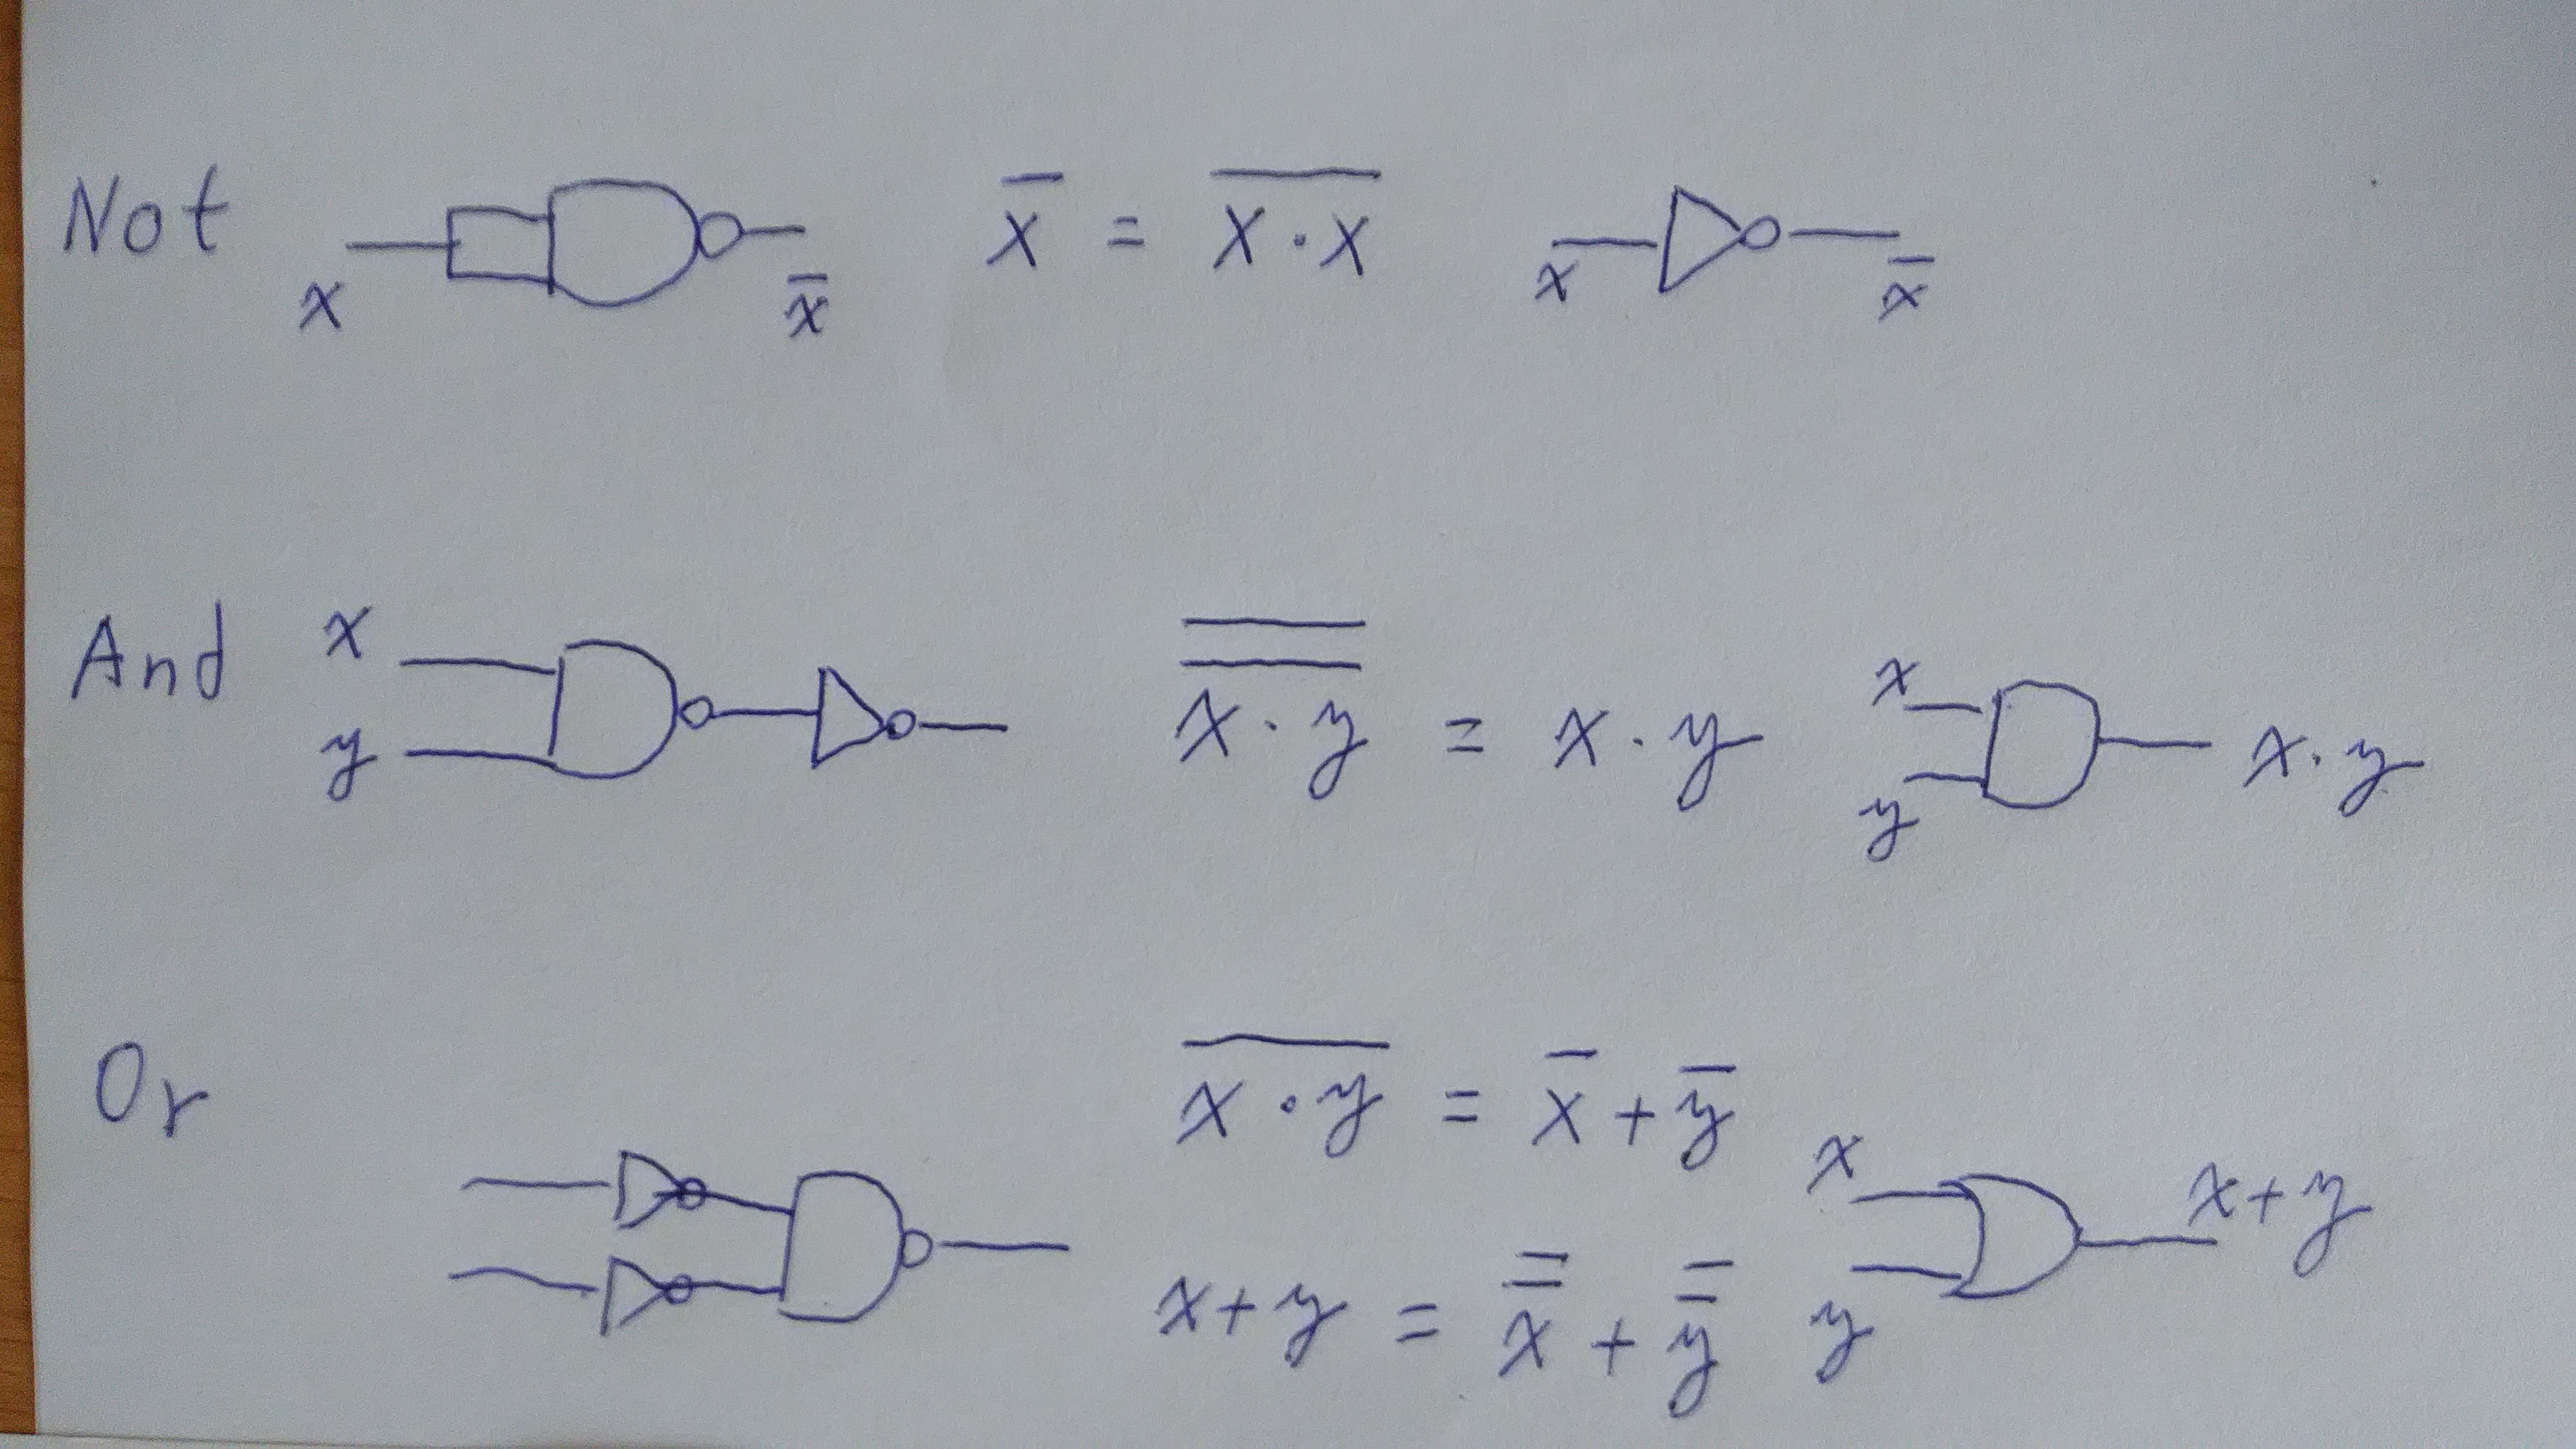 Not x x̅ x̅ = x̅·̅x̅ x x̅
And x y x̿·̿y̿ = x·y x y x·y
Or x̅·̅y̅ = x̅ + y̅
x x+y
x+y = x̿ + y̿ y